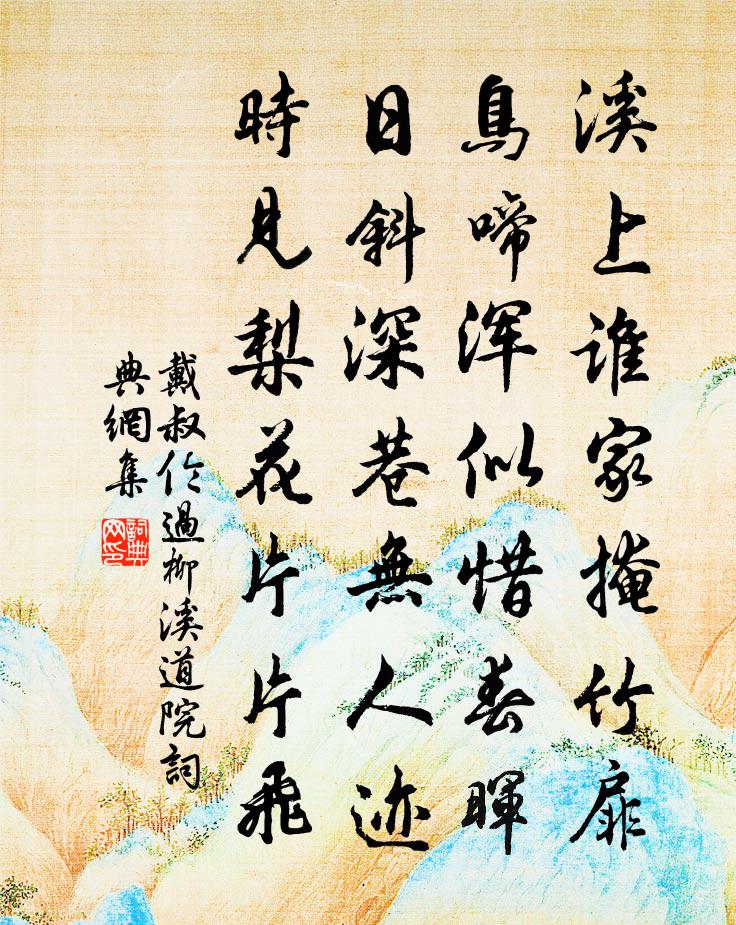 溪上誰家掩竹扉
鳥啼渾似惜春暉
日斜深巷無人迹
時見梨花片片飛
戴叔倫過柳溪道院詞
典網集
詞典
网